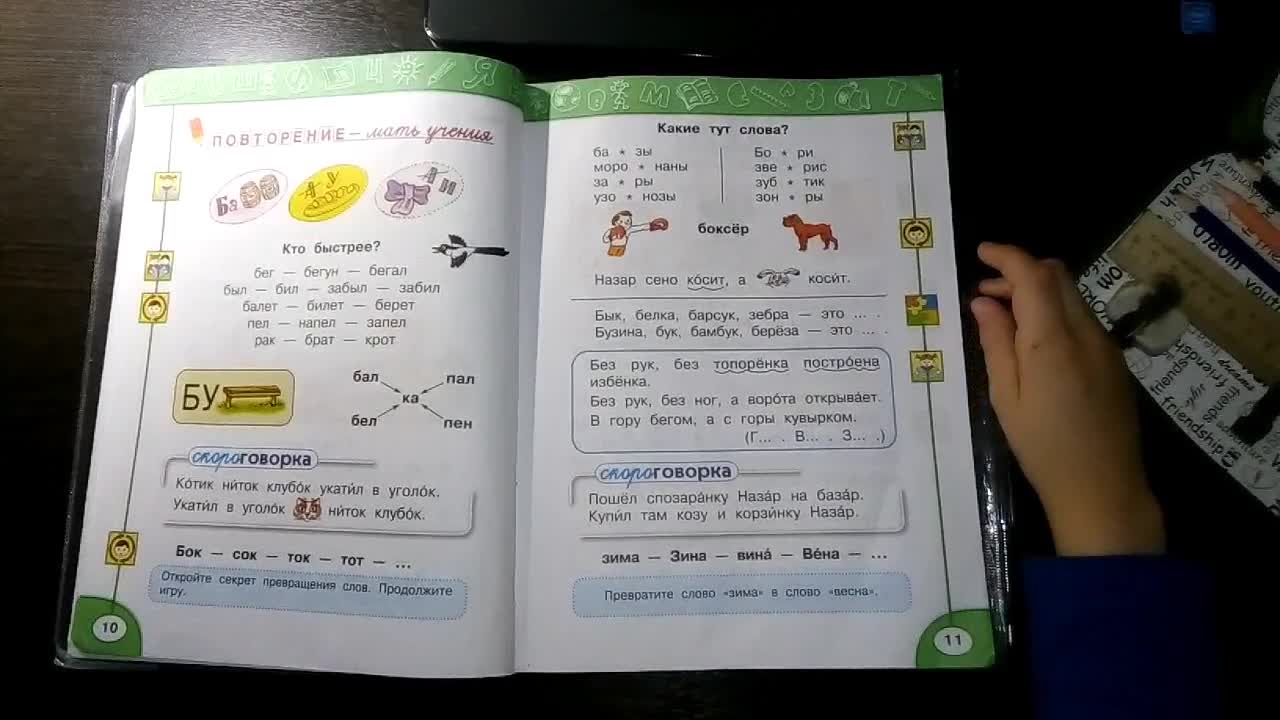 ПОВТОРЕНИЕ – мать учения
Ба
А У
А Н
Кто быстрее?
бег — бегун — бегал
был — бил — забыл — забил
балет — билет — берет
пел — напел — запел
рак — брат — крот
БУ
бал пал
ка
бел пен
скороговорка
Ко́тик ни́ток клубо́к укати́л в уголо́к.
Укати́л в уголо́к ни́ток клубо́к.
Бок — сок — ток — тот — ...
Откройте секрет превращения слов. Продолжите
игру.
10
Какие тут слова?
ба * зы Бо * ри
моро * наны зве * рис
за * ры зуб * тик
узо * нозы зон * ры
боксёр
Назар сено ко́сит, а коси́т.
Бык, белка, барсук, зебра — это ... .
Бузина, бук, бамбук, берёза — это ... .
Без рук, без топорёнка постро́ена
избёнка.
Без рук, без ног, а воро́та открыва́ет.
В гору бегом, а с горы кувырком.
(Г... . В... . З... .)
скороговорка
Пошёл спозара́нку Наза́р на база́р.
Купи́л там козу и корзи́нку Наза́р.
зима — Зина — вина́ — Ве́на — ...
Превратите слово «зима» в слово «весна».
11
WORLD
friendship